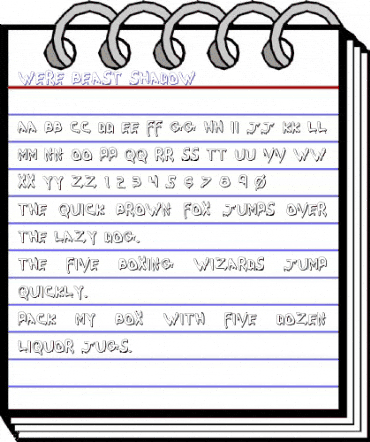 WERE BEAST SHADOW
AA BB CC DD EE FF GG HH II JJ KK LL
MM NN OO PP QQ RR SS TT UU VV WW
XX YY ZZ 1 2 3 4 5 6 7 8 9 0
THE QUICK BROWN FOX JUMPS OVER
THE LAZY DOG.
THE FIVE BOXING WIZARDS JUMP
QUICKLY.
PACK MY BOX WITH FIVE DOZEN
LIQUOR JUGS.